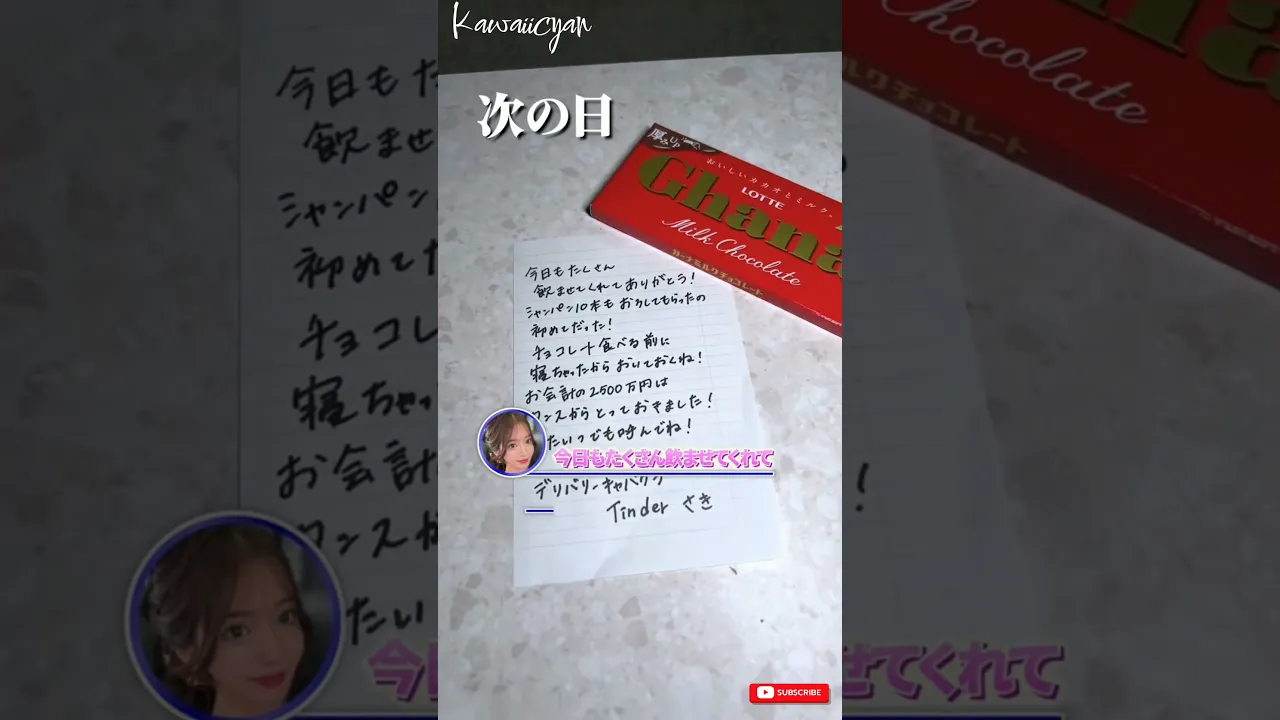 Kawaiicyan
次の日
厚みUP
おいしいカカオとミルク。
LOTTE
Ghana
Milk Chocolate
ガーナミルクチョコレート
今日もたくさん
飲ませてくれてありがとう!
シャンパン10本もおろしてもらったの
初めてだった!
チョコレート食べる前に
寝ちゃったからおいておくね!
お会計の2500万円は
からとっておきました!
たいつでも呼んでね!
今日もたくさん飲ませてくれて
デリバリーキャバクラ
Tinder さき
SUBSCRIBE